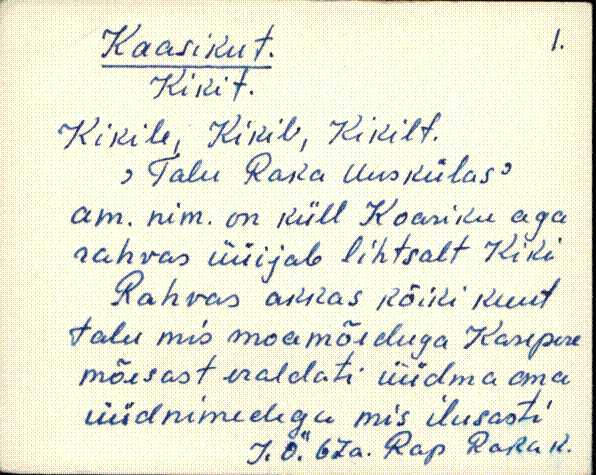 Kaasikut. 1.
Kikit.
Kikile, Kikil, Kikilt.
› Talu Raka Uuskülas ›
am. nim. on küll Koasiku aga
rahvas üüijab lihtsalt Kiki
Rahvas akkas kõiki kuut
talu mis moamõeduga Kasepere
mõesast eraldati üüdma oma
üüdnimedega mis ilusasti
J. Ö. 67a. Rap Raka k.